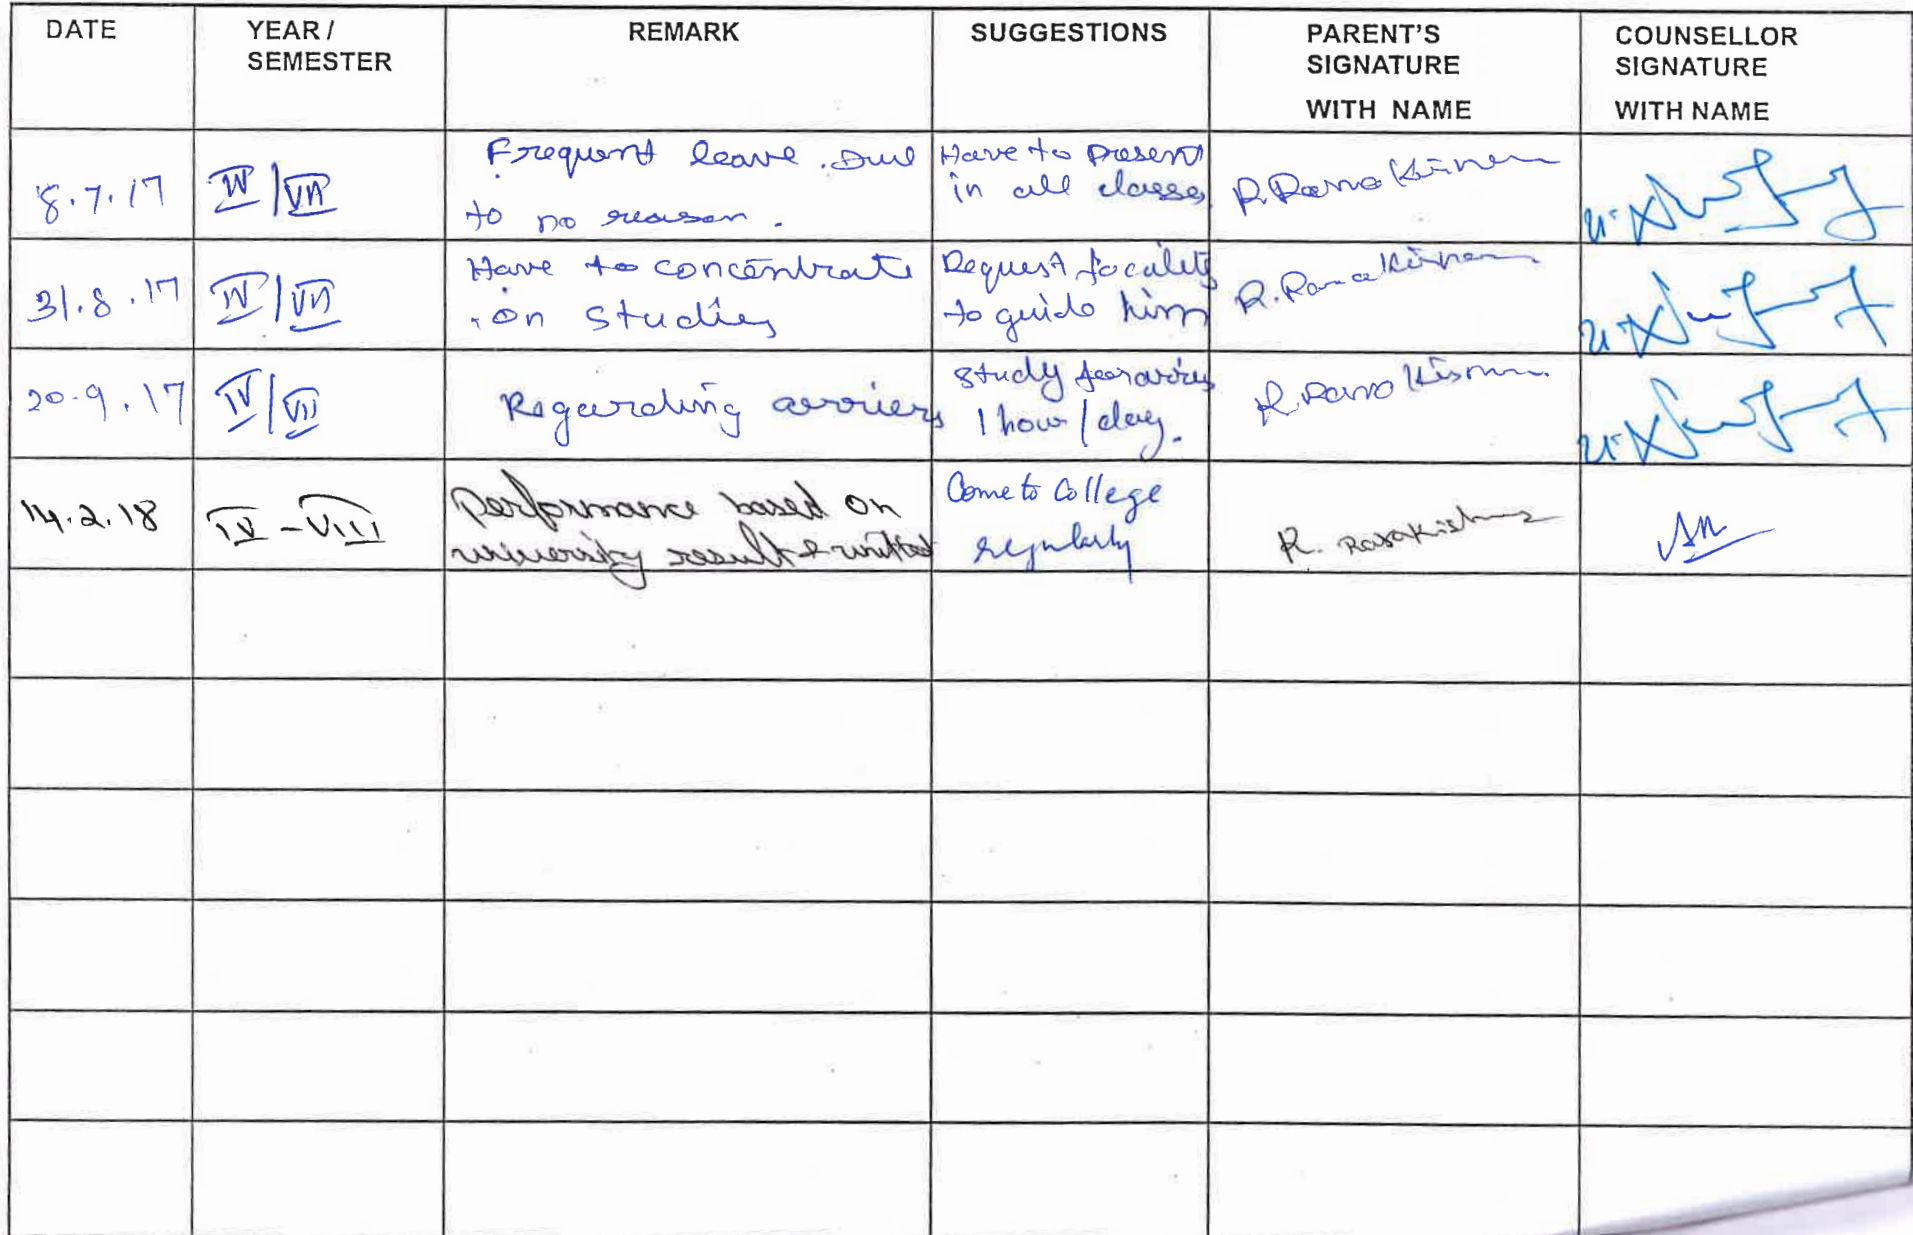 DATE
YEAR /
SEMESTER
REMARK
SUGGESTIONS
PARENT'S
SIGNATURE
WITH NAME
COUNSELLOR
SIGNATURE
WITH NAME
8.7.17
IV/VII
Frequent leave. Due
to no reason.
Have to present
in all classes
R. Rama
31.8.17
IV/VII
Have to concentrate
on studies
Request faculity
to guide him
R. Rama
20.9.17
IV/VII
Regarding arriers
Study
1 hour/day.
R. Rama
14.2.18
IV - VIII
Performance based on
university result &
Come to College
regularly
R.